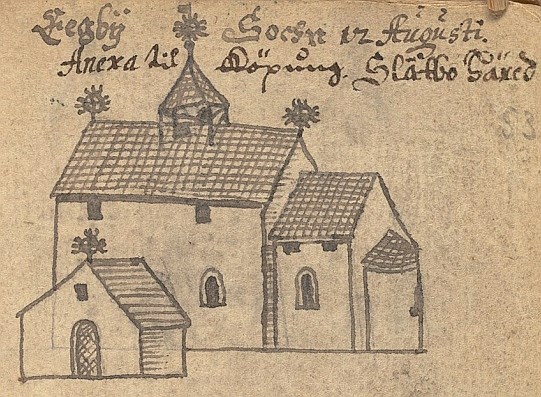 Eegby Sochn 12 Augusti.
Anexa til Köpung. Slätbo Häred